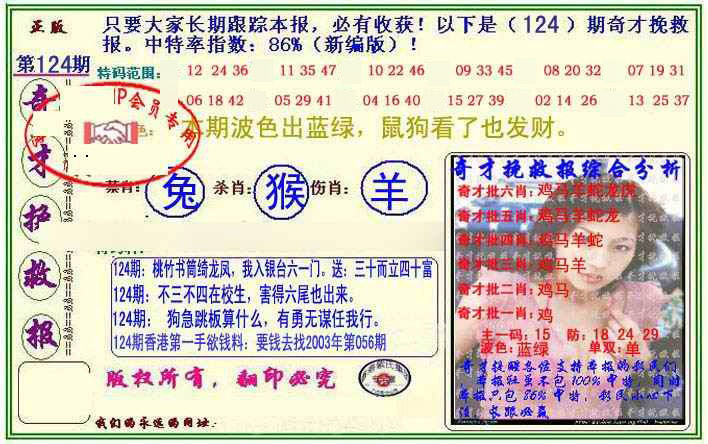 正版
只要大家长期跟踪本报，必有收获！以下是（124）期奇才挽救
报。中特率指数：86%（新编版）！
第124期
特码范围：
12 24 36 11 35 47 10 22 46 09 33 45 08 20 32 07 19 31
06 18 42 05 29 41 04 16 40 15 27 39 02 14 26 13 25 37
P会员专用
本期波色出蓝绿，鼠狗看了也发财。
禁肖：兔 杀肖：猴 伤肖：羊
奇才护救报
124期：桃竹书筒绮龙凤，我入银台六一门。送：三十而立四十富
124期：不三不四在校生，害得六尾也出来。
124期： 狗急跳板算什么，有勇无谋任我行。
124期香港第一手欲钱料：要钱去找2003年第056期
版权所有，翻印必究
我们的永远的网址：
奇才挽救报综合分析
奇才批六肖：鸡马羊蛇龙虎
奇才批五肖：鸡马羊蛇龙
奇才批四肖：鸡马羊蛇
奇才批三肖：鸡马羊
奇才批二肖：鸡马
奇才批一肖：鸡
主一码：15 防：18 24 29
波色：蓝绿 单双：单
奇才挽救各位支持本报的彩民们
本报经虽不包100%中特，同时
本报只包86%中特，彩民小心下
注，长跟必赢